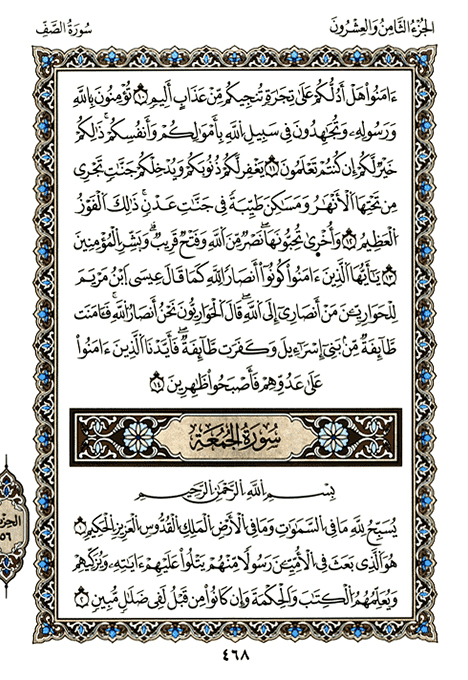 الجزء الثامن والعشرون
سورة الصف
ءامنوا هل أدلكم على تجرة تنجيكم من عذاب أليم ۝١٠ تؤمنون بالله
ورسوله وتجهدون في سبيل الله بأمولكم وأنفسكم ذلكم
خير لكم إن كنتم تعلمون ۝١١ يغفر لكم ذنوبكم ويدخلكم جنت تجرى
من تحتها الأنهر ومسكن طيبة في جنت عدن ذلك الفوز
العظيم ۝١٢ وأخرى تحبونها نصر من الله وفتح قريب وبشر المؤمنين
۝١٣ يأيها الذين ءامنوا كونوا أنصار الله كما قال عيسى ابن مريم
للحوارين من أنصارى إلى الله قال الحواريون نحن أنصار الله فءامنت
طايفة من بنى إسرءيل وكفرت طايفة فأيدنا الذين ءامنوا
على عدوهم فأصبحوا ظهرين ۝١٤
سورة الجمعة
بسم الله الرحمن الرحيم
يسبح لله ما في السموت وما في الأرض الملك القدوس العزيز الحكيم ۝١
هو الذي بعث في الأمين رسولا منهم يتلوا عليهم ءايته ويزكيهم
ويعلمهم الكتب والحكمة وإن كانوا من قبل لفى ضلل مبين ۝٢
٤٦٨